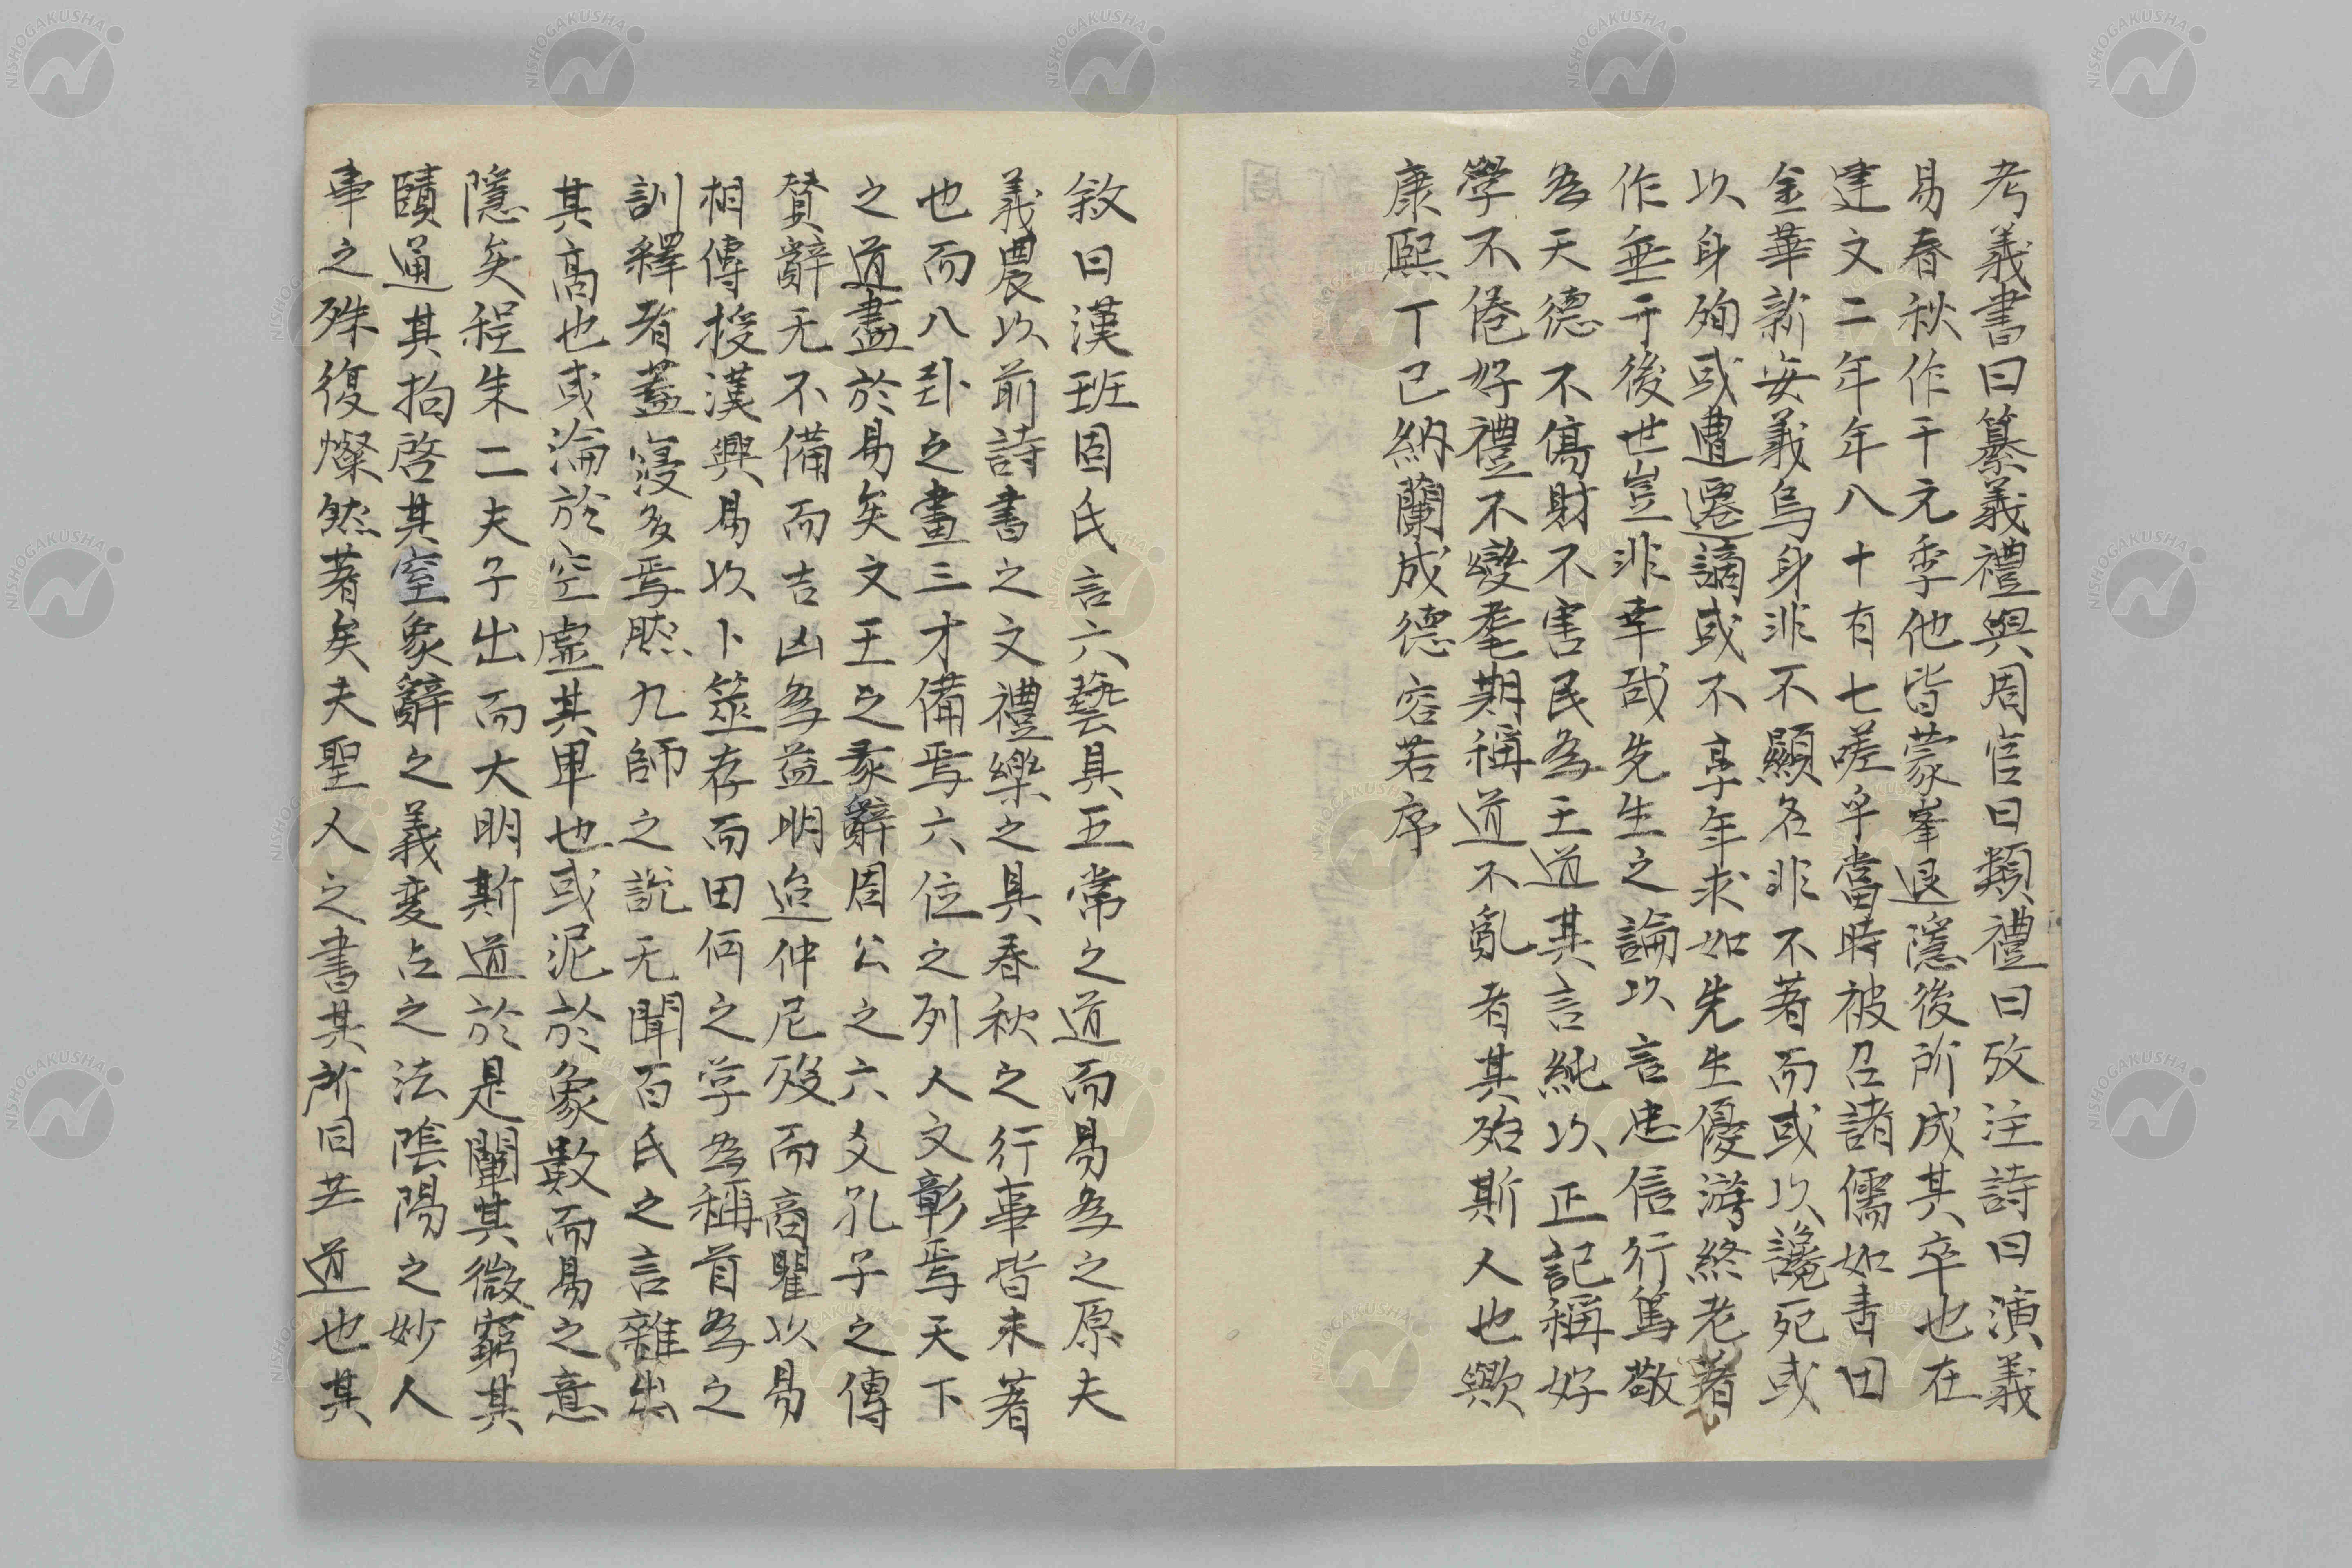 考義書曰纂義禮與周官曰類禮曰攷注詩曰演義
易春秋作于元季他皆蒙峯退隱後所成其卒也在
建文二年年八十有七嗟乎當時被召諸儒如書田
金華新安義烏身非不顯名非不著而或以讒死或
以身殉或遭遷謫或不享年求如先生優游終老著
作垂于後世豈非幸哉先生之論以言忠信行篤敬
為天德不傷財不害民為王道其言純以正記稱好
學不倦好禮不變耄期稱道不亂者其殆斯人也歟
康熙丁巳納蘭成德容若序
敘曰漢班固氏言六藝具五常之道而易為之原夫
義農以前詩書之文禮樂之具春秋之行事皆未著
也而八卦之畫三才備焉六位之列人文彰焉天下
之道盡於易矣文王之彖辭周公之六爻孔子之傳
贊辭无不備而吉凶為益明迨仲尼歿而商瞿以易
相傳授漢興易以卜筮存而田何之学為稱首為之
訓釋者蓋寖多焉然九師之說无聞百氏之言雜出
其高也或淪於空虛其卑也或泥於象數而易之意
隱矣程朱二夫子出而大明斯道於是闡其微窮其
賾通其拘啓其窒象辭之義変占之法陰陽之妙人
事之殊復燦然著矣夫聖人之書其所同者道也其
NISHOGAKUSHA